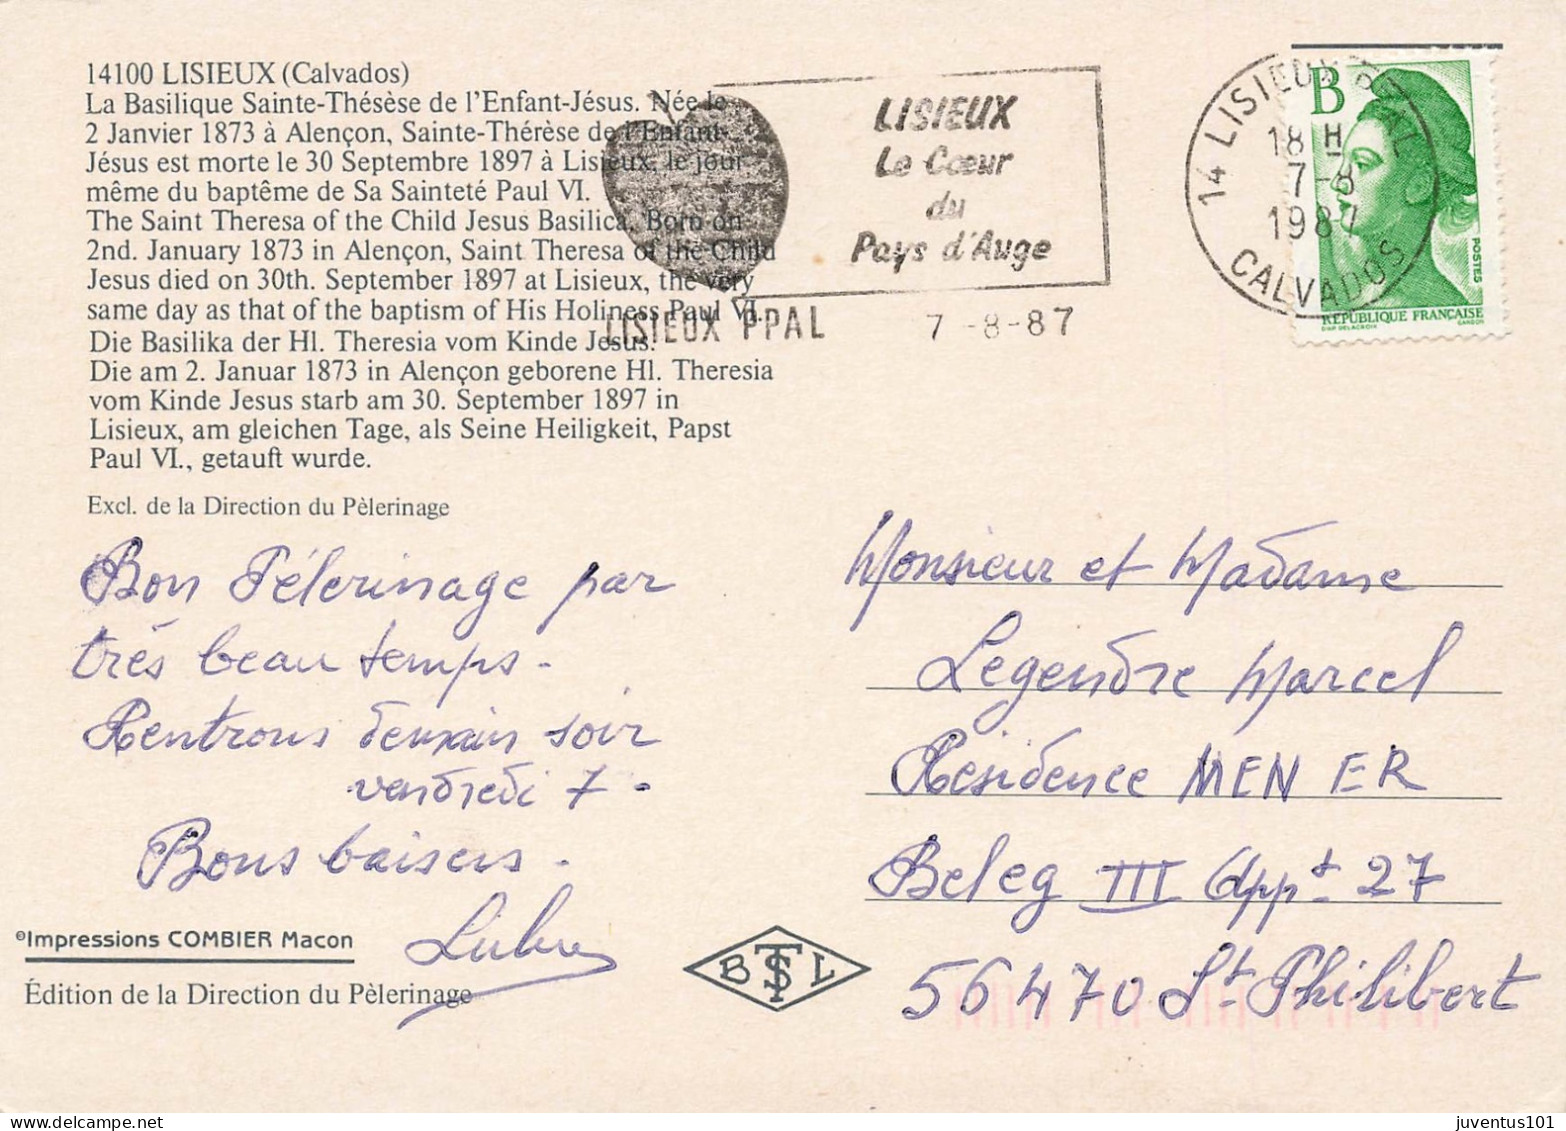 14100 LISIEUX (Calvados)
La Basilique Sainte-Thésèse de l'Enfant-Jésus. Née le
2 Janvier 1873 à Alençon, Sainte-Thérèse de l'Enfant-
Jésus est morte le 30 Septembre 1897 à Lisieux, le jour
même du baptême de Sa Sainteté Paul VI.
The Saint Theresa of the Child Jesus Basilica. Born on
2nd. January 1873 in Alençon, Saint Theresa of the Child
Jesus died on 30th. September 1897 at Lisieux, the very
same day as that of the baptism of His Holiness Paul VI.
Die Basilika der Hl. Theresia vom Kinde Jesus.
Die am 2. Januar 1873 in Alençon geborene Hl. Theresia
vom Kinde Jesus starb am 30. September 1897 in
Lisieux, am gleichen Tage, als Seine Heiligkeit, Papst
Paul VI., getauft wurde.
Excl. de la Direction du Pèlerinage
LISIEUX
Le Cœur
du
Pays d'Auge
LISIEUX PPAL 7-8-87
14 LISIEUX PPAL
18 H
7-8
1987
CALVADOS
B
POSTES
RÉPUBLIQUE FRANÇAISE
D'AP DELACROIX GANDON
Bon Pélerinage par
très beau temps-
Rentrons demain soir
vendredi 7-
Bons baisers-
Monsieur et Madame
Legendre Marcel
Résidence MENER
Beleg III Appt 27
56470 St Philibert
Impressions COMBIER Macon
Édition de la Direction du Pèlerinage
BTSL
juventus101